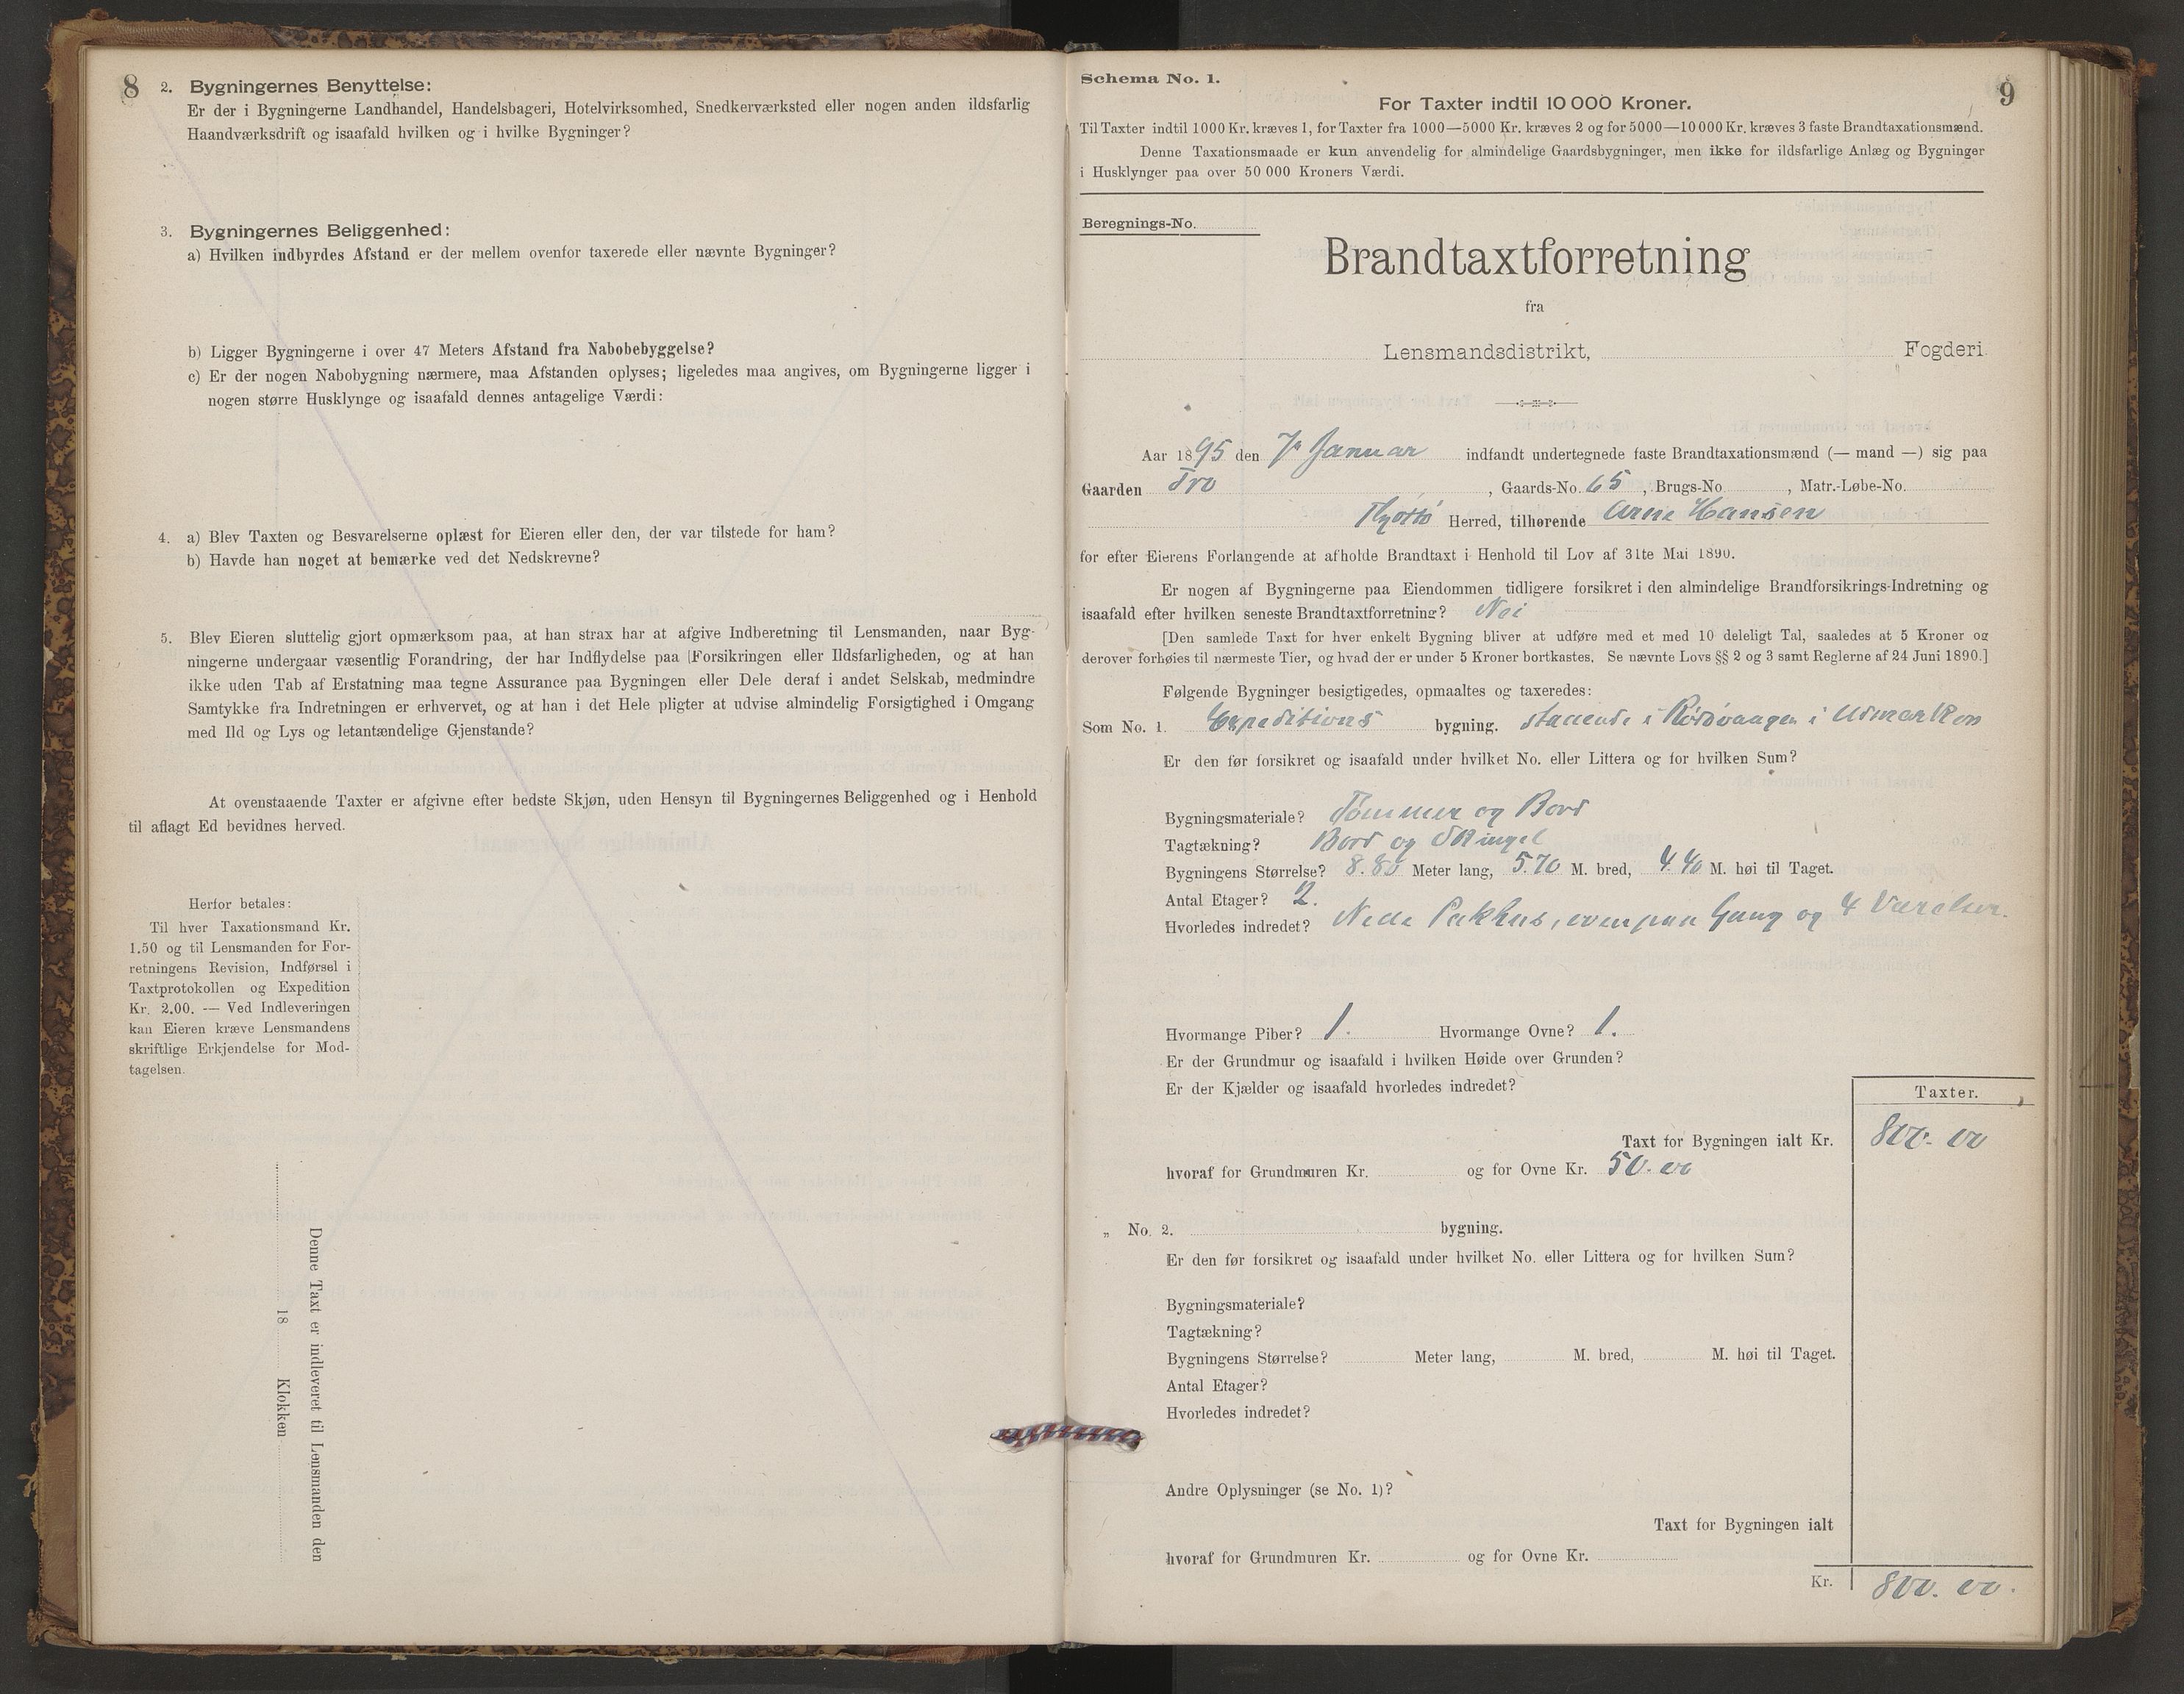 8
2. Bygningernes Benyttelse:
Er der i Bygningerne Landhandel, Handelsbageri, Hotelvirksomhed, Snedkerværksted eller nogen anden ildsfarlig
Haandværksdrift og isaafald hvilken og i hvilke Bygninger?
3. Bygningernes Beliggenhed:
a) Hvilken indbyrdes Afstand er der mellem ovenfor taxerede eller nævnte Bygninger?
b) Ligger Bygningerne i over 47 Meters Afstand fra Nabobebyggelse?
c) Er der nogen Nabobygning nærmere, maa Afstanden oplyses; ligeledes maa angives, om Bygningerne ligger i
nogen større Husklynge og isaafald dennes antagelige Værdi:
4. a) Blev Taxten og Besvarelserne oplæst for Eieren eller den, der var tilstede for ham?
b) Havde han noget at bemærke ved det Nedskrevne?
5. Blev Eieren sluttelig gjort opmærksom paa, at han strax har at afgive Indberetning til Lensmanden, naar Byg-
ningerne undergaar væsentlig Forandring, der har Indflydelse paa Forsikringen eller Ildsfarligheden, og at han
ikke uden Tab af Erstatning maa tegne Assurance paa Bygningen eller Dele deraf i andet Selskab, medmindre
Samtykke fra Indretningen er erhvervet, og at han i det Hele pligter at udvise almindelig Forsigtighed i Omgang
med Ild og Lys og letantændelige Gjenstande?
At ovenstaaende Taxter er afgivne efter bedste Skjøn, uden Hensyn til Bygningernes Beliggenhed og i Henhold
til aflagt Ed bevidnes herved.
Herfor betales:
Til hver Taxationsmand Kr.
1.50 og til Lensmanden for For-
retningens Revision, Indførsel i
Taxtprotokollen og Expedition
Kr. 2.00. — Ved Indleveringen
kan Eieren kræve Lensmandens
skriftlige Erkjendelse for Mod-
tagelsen.
Denne Taxt er indleveret til Lensmanden den
18 Klokken
Schema No. 1.
9
For Taxter indtil 10 000 Kroner.
Til Taxter indtil 1000 Kr. kræves 1, for Taxter fra 1000—5000 Kr. kræves 2 og for 5000—10 000 Kr. kræves 3 faste Brandtaxationsmænd.
Denne Taxationsmaade er kun anvendelig for almindelige Gaardsbygninger, men ikke for ildsfarlige Anlæg og Bygninger
i Husklynger paa over 50 000 Kroners Værdi.
Beregnings-No.
Brandtaxtforretning
fra
Lensmandsdistrikt, Fogderi.
Aar 1895 den 7de Januar indfandt undertegnede faste Brandtaxationsmænd (— mand —) sig paa
Gaarden Tro , Gaards-No. 65 , Brugs-No. , Matr.-Løbe-No.
Tjøttø Herred, tilhørende Arne Hansen
for efter Eierens Forlangende at afholde Brandtaxt i Henhold til Lov af 31te Mai 1890.
Er nogen af Bygningerne paa Eiendommen tidligere forsikret i den almindelige Brandforsikrings-Indretning og
isaafald efter hvilken seneste Brandtaxtforretning? Nei
[Den samlede Taxt for hver enkelt Bygning bliver at udføre med et med 10 deleligt Tal, saaledes at 5 Kroner og
derover forhøies til nærmeste Tier, og hvad der er under 5 Kroner bortkastes. Se nævnte Lovs §§ 2 og 3 samt Reglerne af 24 Juni 1890.]
Følgende Bygninger besigtigedes, opmaaltes og taxeredes:
Som No. 1. Expeditions bygning. staaende i Rørøvaagen i Udmarken
Er den før forsikret og isaafald under hvilket No. eller Littera og for hvilken Sum?
Bygningsmateriale? Tømmer og Bord
Tagtækning? Bord og Skingel
Bygningens Størrelse? 8.80 Meter lang, 5.70 M. bred, 4.40 M. høi til Taget.
Antal Etager? 2.
Hvorledes indredet? Nede Pakhus, ovenpaa Gang og 4 Værelser.
Hvormange Piber? 1. Hvormange Ovne? 1.
Er der Grundmur og isaafald i hvilken Høide over Grunden?
Er der Kjælder og isaafald hvorledes indredet?
Taxter.
Taxt for Bygningen ialt Kr. 800. 00
hvoraf for Grundmuren Kr. og for Ovne Kr. 50. 00
„ No. 2. bygning.
Er den før forsikret og isaafald under hvilket No. eller Littera og for hvilken Sum?
Bygningsmateriale?
Tagtækning?
Bygningens Størrelse? Meter lang, M. bred, M. høi til Taget.
Antal Etager?
Hvorledes indredet?
Andre Oplysninger (se No. 1)?
Taxt for Bygningen ialt
hvoraf for Grundmuren Kr. og for Ovne Kr.
Kr. 800. 00.